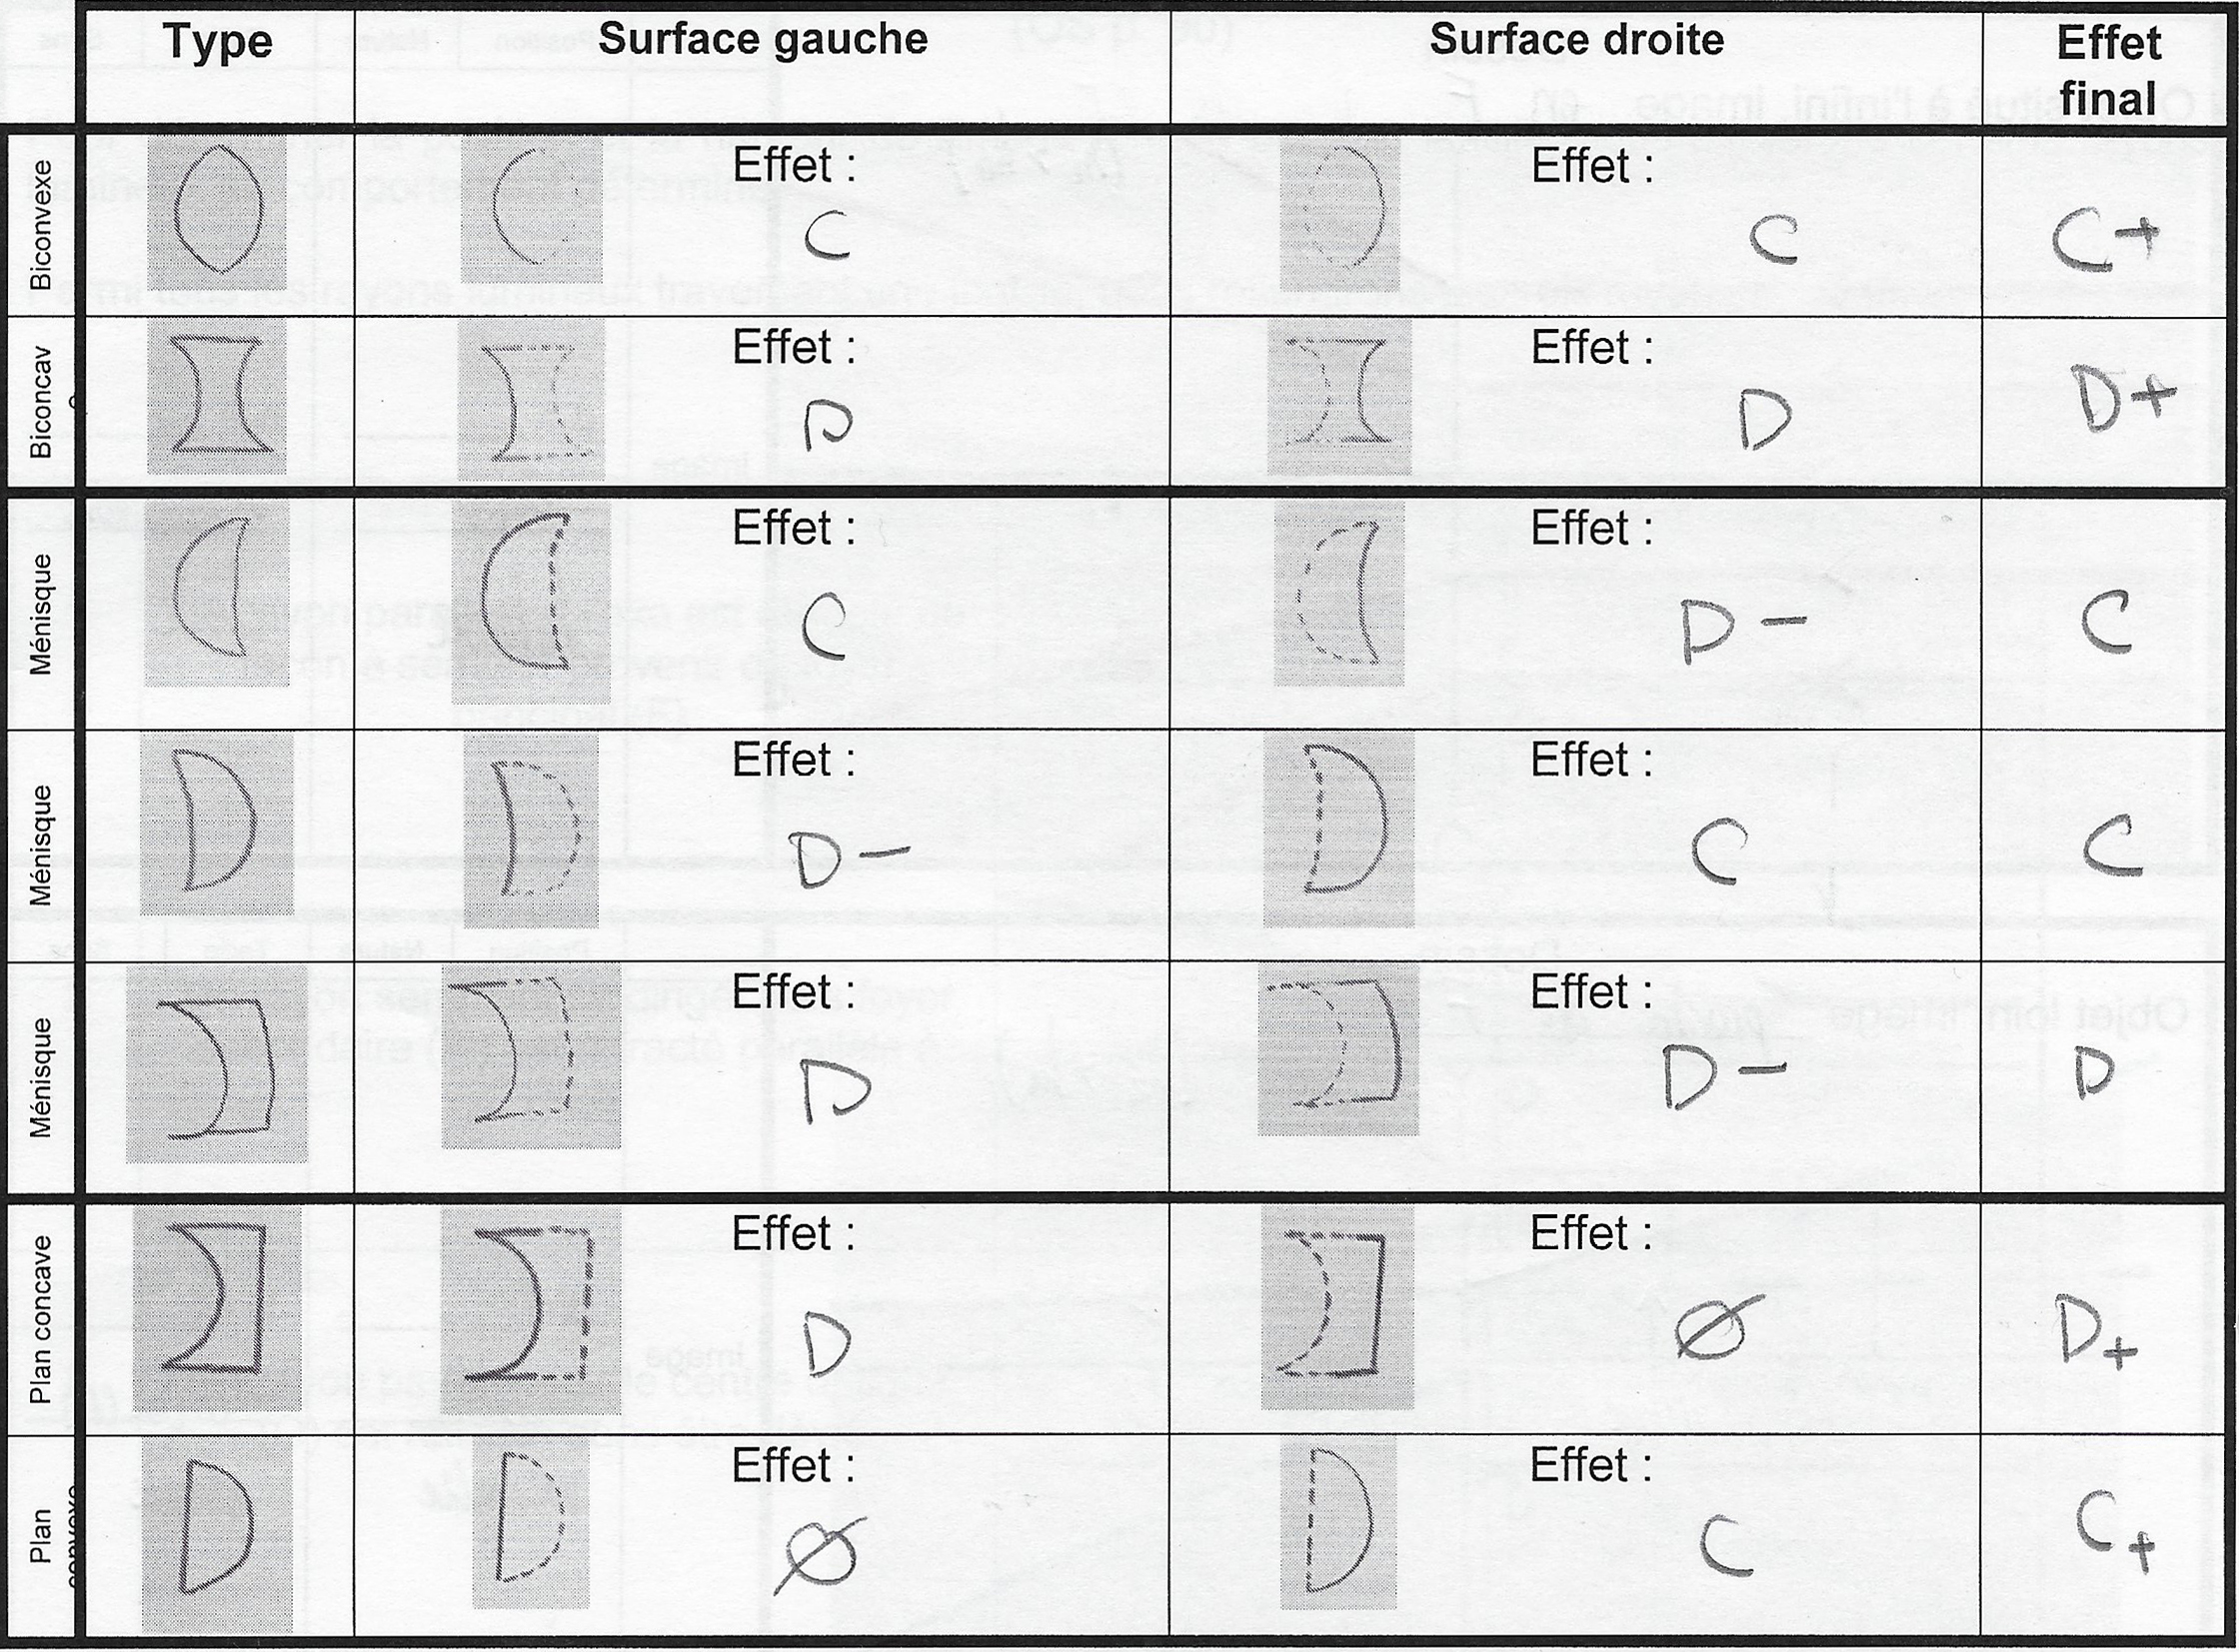 Type Surface gauche Surface droite Effet
final
Biconvexe Effet : Effet :
C C C+
Biconcav Effet : Effet :
D D D+
Ménisque Effet : Effet :
C D - C
Ménisque Effet : Effet :
D - C C
Ménisque Effet : Effet :
D D - D
Plan concave Effet : Effet :
D Ø D+
Plan Effet : Effet :
Ø C C+